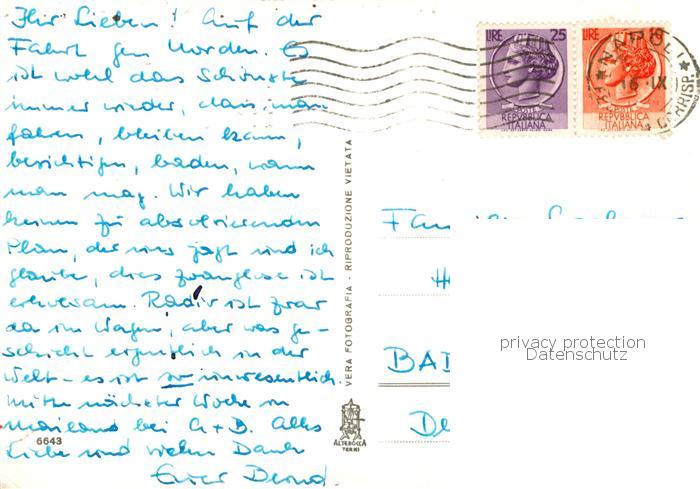 Ihr Lieben! Auf der
Fahrt gen Norden. Es
ist wohl das Schönste
immer wieder, dass man
fahren, bleiben kann,
besichtigen, baden, wann
man mag. Wir haben
keinen zu absolvierenden
Plan, der uns jagt und ich
glaube, dies zwanglose ist
erholsam. Radio ist zwar
da im Wagen, aber was ge-
schieht eigentlich in der
Welt - es ist so unwesentlich.
Mitte nächster Woche in
Mailand bei G + B. Alles
Liebe und vielen Dank
Euer Bernd
6643
VERA FOTOGRAFIA - RIPRODUZIONE VIETATA
ALTEROCCA
TERNI
LIRE 25
POSTE
REPVBBLICA
ITALIANA
LIRE
POSTE
REPVBBLICA
ITALIANA
NAPOLI
16 IX
BAD
privacy protection
Datenschutz